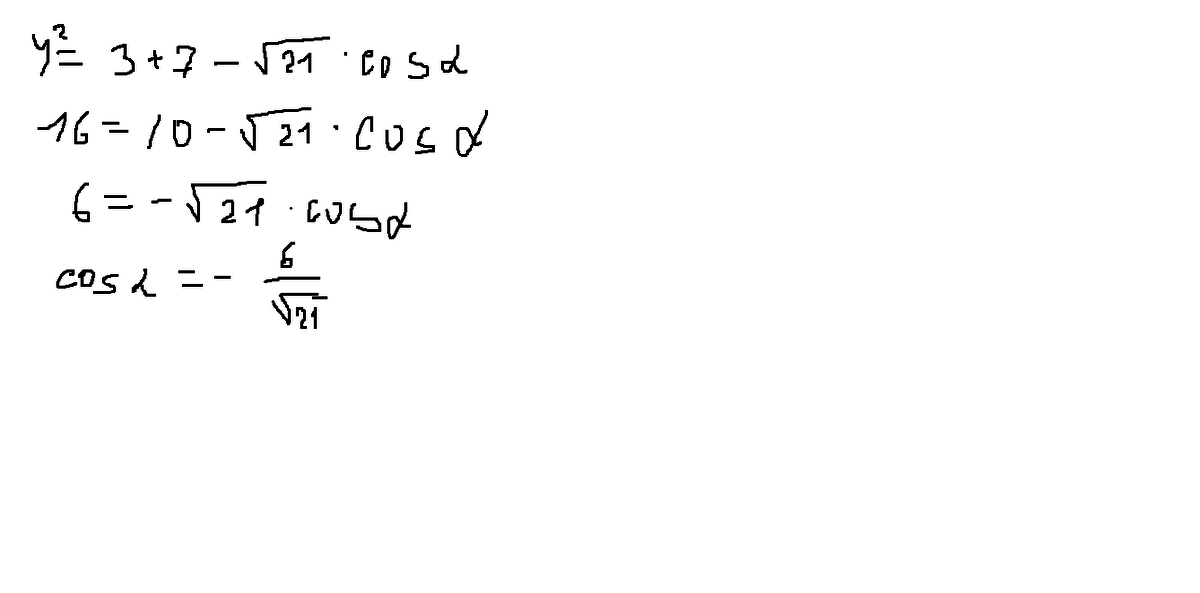 y² = 3 + 7 - √21 · cos α
16 = 10 - √21 · cos α
6 = - √21 · cos α
cos α = - 6/√21